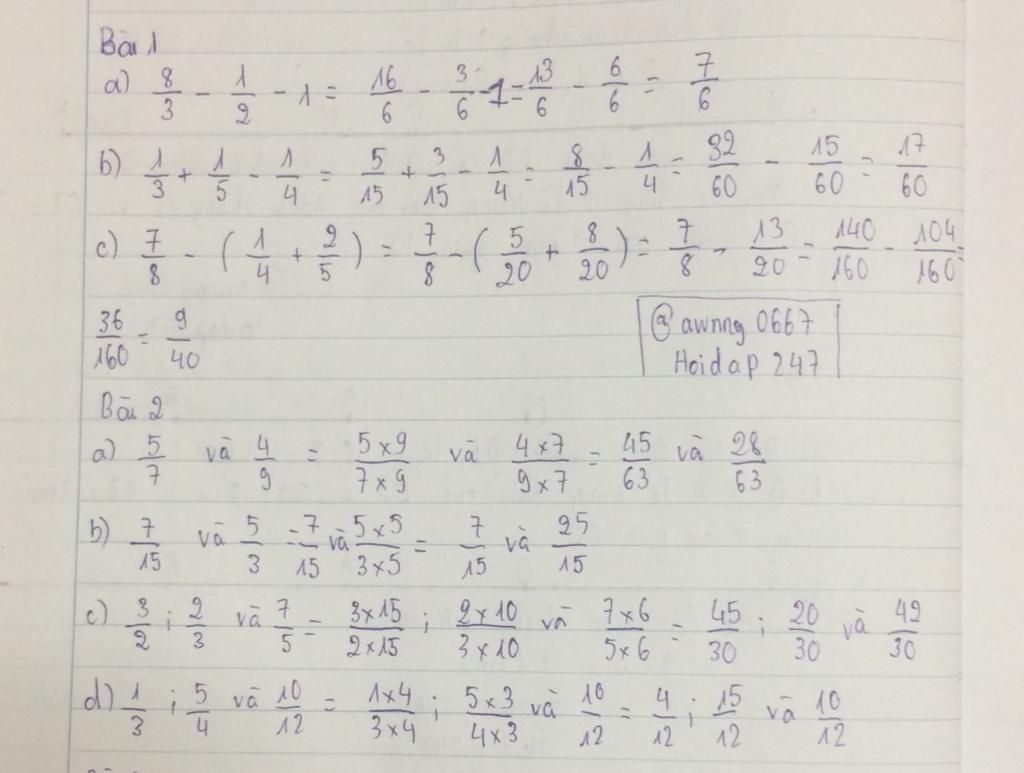 Bài 1
a) 8/3 - 1/2 - 1 = 16/6 - 3/6 - 1 = 13/6 - 6/6 = 7/6
b) 1/3 + 1/5 - 1/4 = 5/15 + 3/15 - 1/4 = 8/15 - 1/4 = 32/60 - 15/60 = 17/60
c) 7/8 - ( 1/4 + 2/5 ) = 7/8 - ( 5/20 + 8/20 ) = 7/8 - 13/20 = 140/160 - 104/160 =
36/160 = 9/40
@awnng 0667
Hoidap 247
Bài 2
a) 5/7 và 4/9 = 5x9/7x9 và 4x7/9x7 = 45/63 và 28/63
b) 7/15 và 5/3 = 7/15 và 5x5/3x5 = 7/15 và 25/15
c) 3/2 ; 2/3 và 7/5 = 3x15/2x15 ; 2x10/3x10 và 7x6/5x6 = 45/30 ; 20/30 và 42/30
d) 1/3 ; 5/4 và 10/12 = 1x4/3x4 ; 5x3/4x3 và 10/12 = 4/12 ; 15/12 và 10/12